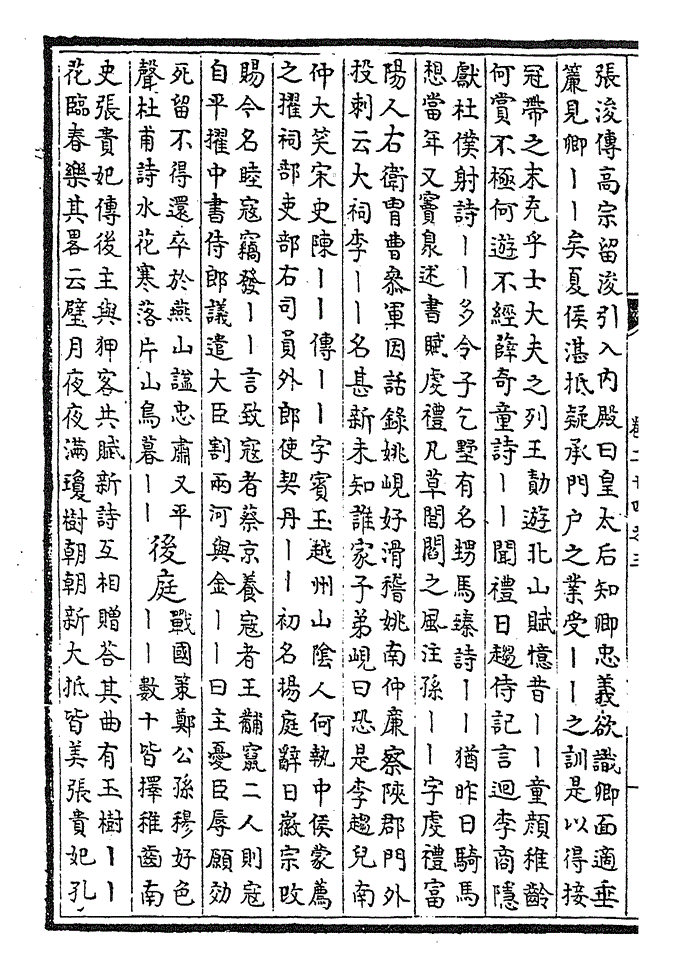 張浚傳高宗留浚引入內殿曰皇太后知卿忠義欲識卿面適垂
簾見卿丨丨矣夏侯湛抵疑承門户之業受丨丨之訓是以得接
冠帶之末充乎士大夫之列王勣遊北山賦憶昔丨丨童顔稚齡
何賞不極何遊不經薛奇童詩丨丨聞禮日趨侍記言迴李商隱
獻杜僕射詩丨丨多令子乞墅有名甥馬臻詩丨丨猶昨日騎馬
想當年又竇泉述書賦虔禮凡草閭閻之風注孫丨丨字虔禮富
陽人右衛冑曹叅軍因話錄姚峴好滑稽姚南仲廉察陜郡門外
投刺云大祠李丨丨名甚新未知誰家子弟峴曰恐是李趨兒南
仲大笑宋史陳丨丨傳丨丨字賓玉越州山陰人何執中侯蒙薦
之擢祠部吏部右司員外郎使契丹丨丨初名揚庭辭日徽宗改
賜今名睦寇竊發丨丨言致寇者蔡京養寇者王黼竄二人則寇
自平擢中書侍郎議遣大臣割兩河與金丨丨曰主憂臣辱願効
死留不得還卒於燕山諡忠肅又平
聲杜甫詩水花寒落片山鳥暮丨丨
後庭
戰國策鄭公孫穆好色
丨丨數十皆擇稚齒南
史張貴妃傳後主與狎客共賦新詩互相贈荅其曲有玉樹丨丨
花臨春樂其畧云璧月夜夜滿瓊樹朝朝新大抵皆美張貴妃孔
卷二十四之三